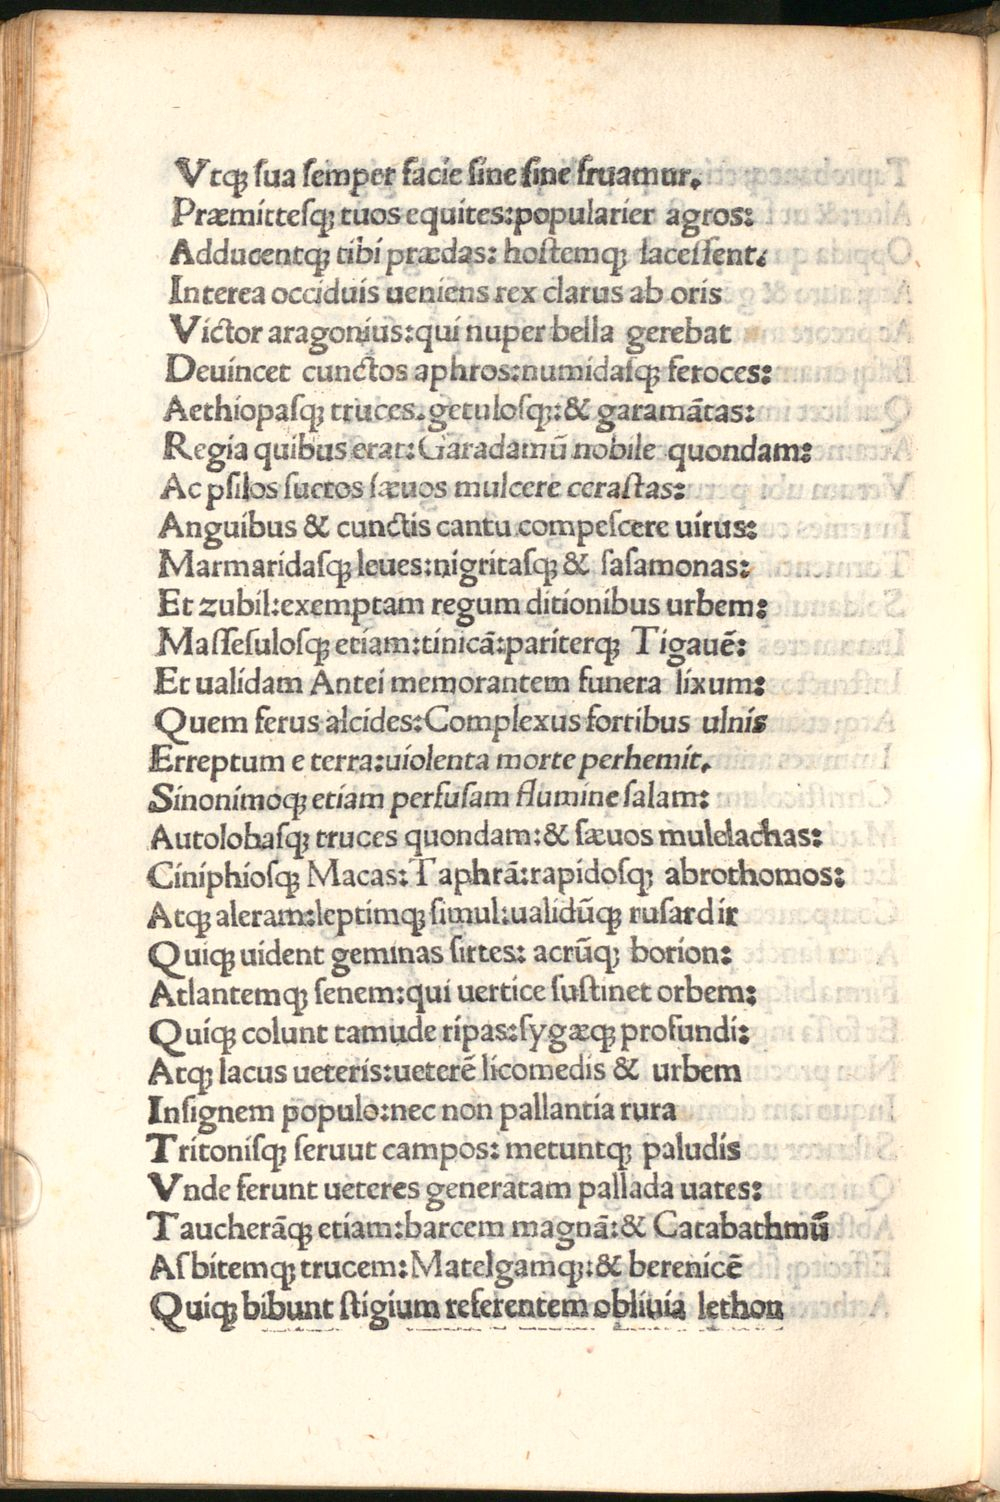 Vtq; ſua ſemper facie ſine fine fruamur.
Præmitteſq; tuos equites:popularier agros:
Adducentq; tibi prædas: hoſtemq; laceſſent.
Interea occiduis ueniens rex clarus ab oris
Victor aragonius:qui nuper bella gerebat
Deuincet cunctos aphros:numidaſq; feroces:
Aethiopaſq; truces. getuloſq;:& garamātas:
Regia quibus erat: Garadamū nobile quondam:
Ac pſilos ſuetos ſæuos mulcere ceraſtas:
Anguibus & cunctis cantu compeſcere uirus:
Marmaridaſq; leues:nigritaſq; & ſaſamonas:
Et zubil:exemptam regum ditionibus urbem:
Maſſeſuloſq; etiam:tinicā:pariterq; Tigauē:
Et ualidam Antei memorantem funera lixum:
Quem ferus alcides:Complexus fortibus ulnis
Erreptum e terra:uiolenta morte perhemit.
Sinonimoq; etiam perfuſam flumine ſalam:
Autolohaſq; truces quondam:& ſæuos mulelachas:
Ciniphioſq; Macas: Taphrā:rapidoſq; abrothomos:
Atq; aleram:leptimq; ſimul:ualidūq; ruſardir
Quiq; uident geminas ſirtes: acrūq; borion:
Atlantemq; ſenem:qui uertice ſuſtinet orbem:
Quiq; colunt tamude ripas:ſygæq; profundi:
Atq; lacus ueteris:ueterē licomedis & urbem
Inſignem populo:nec non pallantia rura
Tritoniſq; ſeruut campos: metuntq; paludis
Vnde ferunt ueteres generatam pallada uates:
Taucherāq; etiam:barcem magnā:& Catabathmū
Aſbitemq; trucem: Matelgamq;:& berenicē
Quiq; bibunt ſtigium referentem obliuia lethon